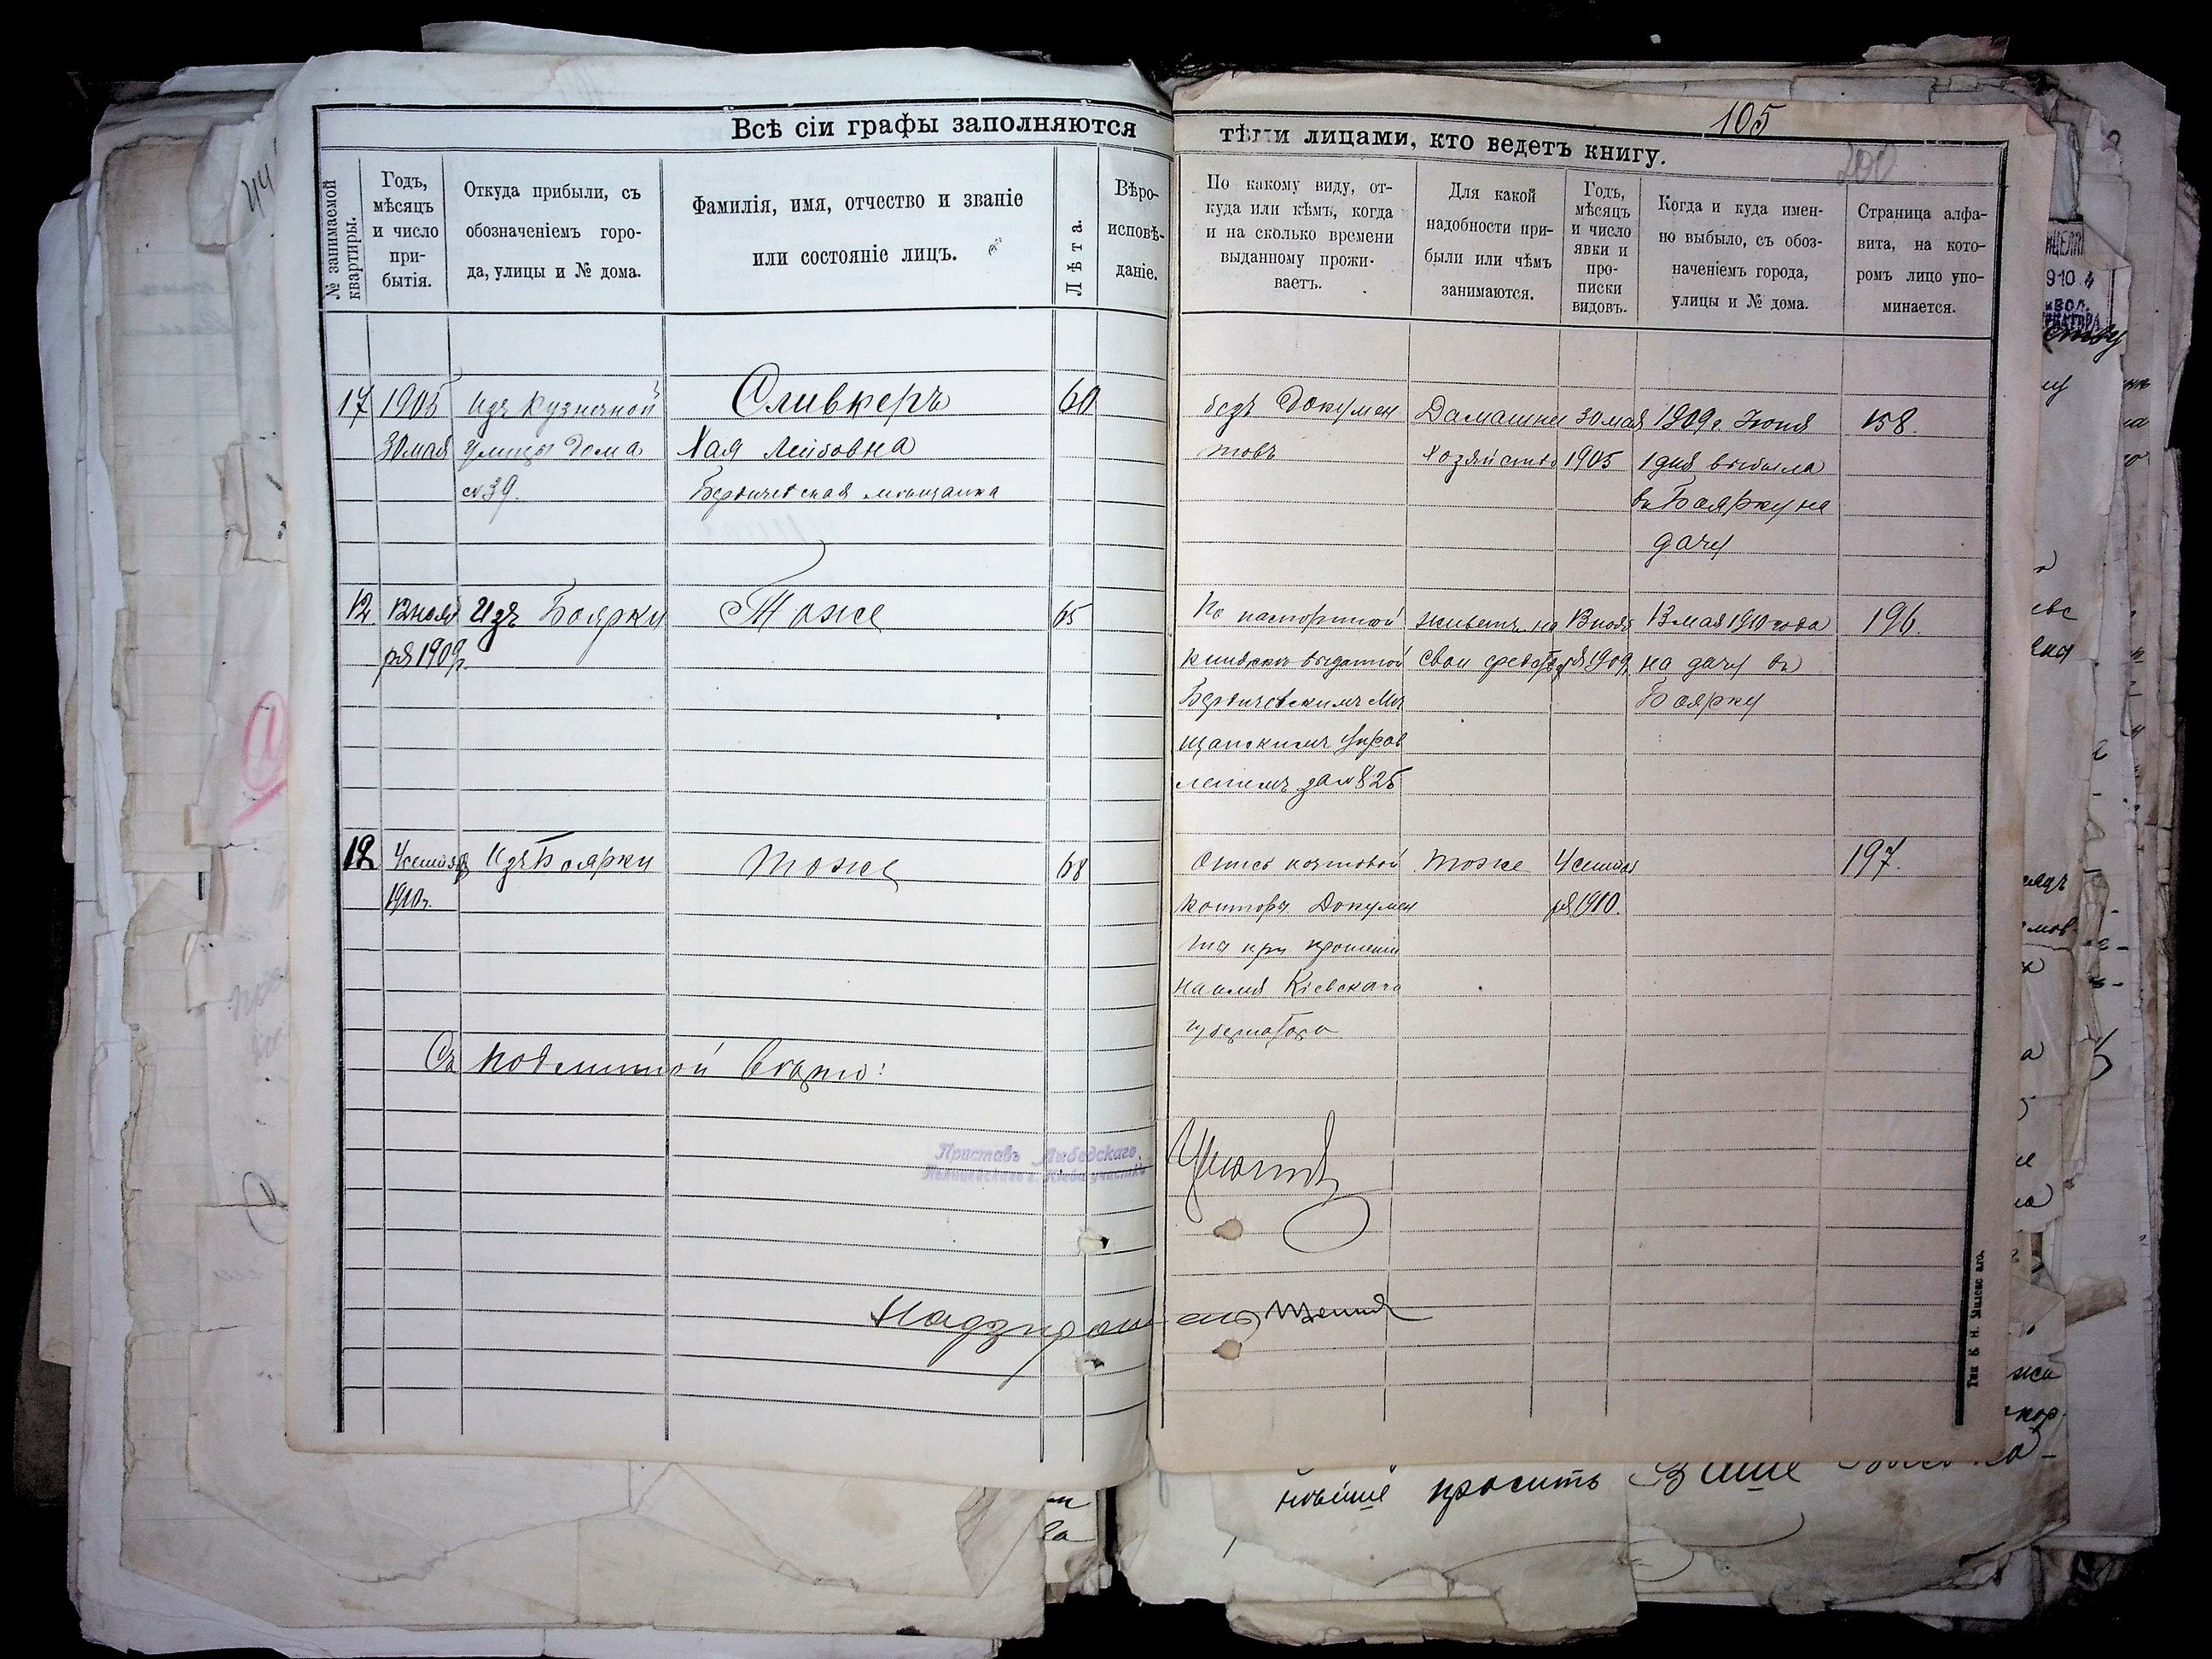 105
200
Всѣ сіи графы заполняются тѣми лицами, кто ведетъ книгу.
№ занимаемой
квартиры.
Годъ,
мѣсяцъ
и число
при-
бытія.
Откуда прибыли, съ
обозначеніемъ горо-
да, улицы и № дома.
Фамилія, имя, отчество и званіе
или состояніе лицъ.
Лѣта.
Вѣро-
исповѣ-
даніе.
По какому виду, от-
куда или кѣмъ, когда
и на сколько времени
выданному прожи-
ваетъ.
Для какой
надобности при-
были или чѣмъ
занимаются.
Годъ,
мѣсяцъ
и число
явки и
про-
писки
видовъ.
Когда и куда имен-
но выбыло, съ обоз-
наченіемъ города,
улицы и № дома.
Страница алфа-
вита, на кото-
ромъ лицо упо-
минается.
17
1905
30 мая
Изъ Кузнечной
улицы дома
№ 39.
Сливкеръ
Хая Лейбовна
Бердичевская мѣщанка
60
безъ Докумен
товъ
Дамашни
хозяйство
30 мая
1905
1909 г. Июня
1 дня выбыла
въ Боярку на
дачу
158.
12
12 нояб
ря 1909 г.
Изъ Боярки
Тоже
65
По паспортной
книжкѣ выданной
Бердичевскимъ Мѣ
щанскимъ Управ
леніемъ за № 825
живетъ на
свои средства
13 нояб
ря 1909 г.
13 мая 1910 года
на дачу въ
Боярку
196.
12
4 сентяб
1910 г.
Изъ Боярки
Тоже
68
почтовой
конторы Докумен
та при прошеніи
на имя Кіевскаго
губернатора
тоже
4 сентяб
ря 1910.
197.
Съ подлинной вѣрно:
Приставъ Лыбедскаго
Полицейскаго г. Кіева участка
Надзиратель
Тип. С. Н.
нѣйше просить Ваше